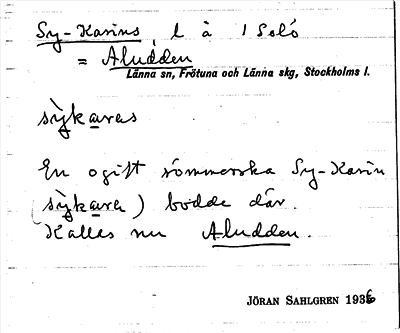 Sy-Karins, l å 1 Solö
= Aludden
Länna sn, Frötuna och Länna skg, Stockholms l.
sỳkaras
En ogift sömmerska Sy-Karin
(sỳkara) bodde där.
Kallas nu Aludden.
JÖRAN SAHLGREN 1936